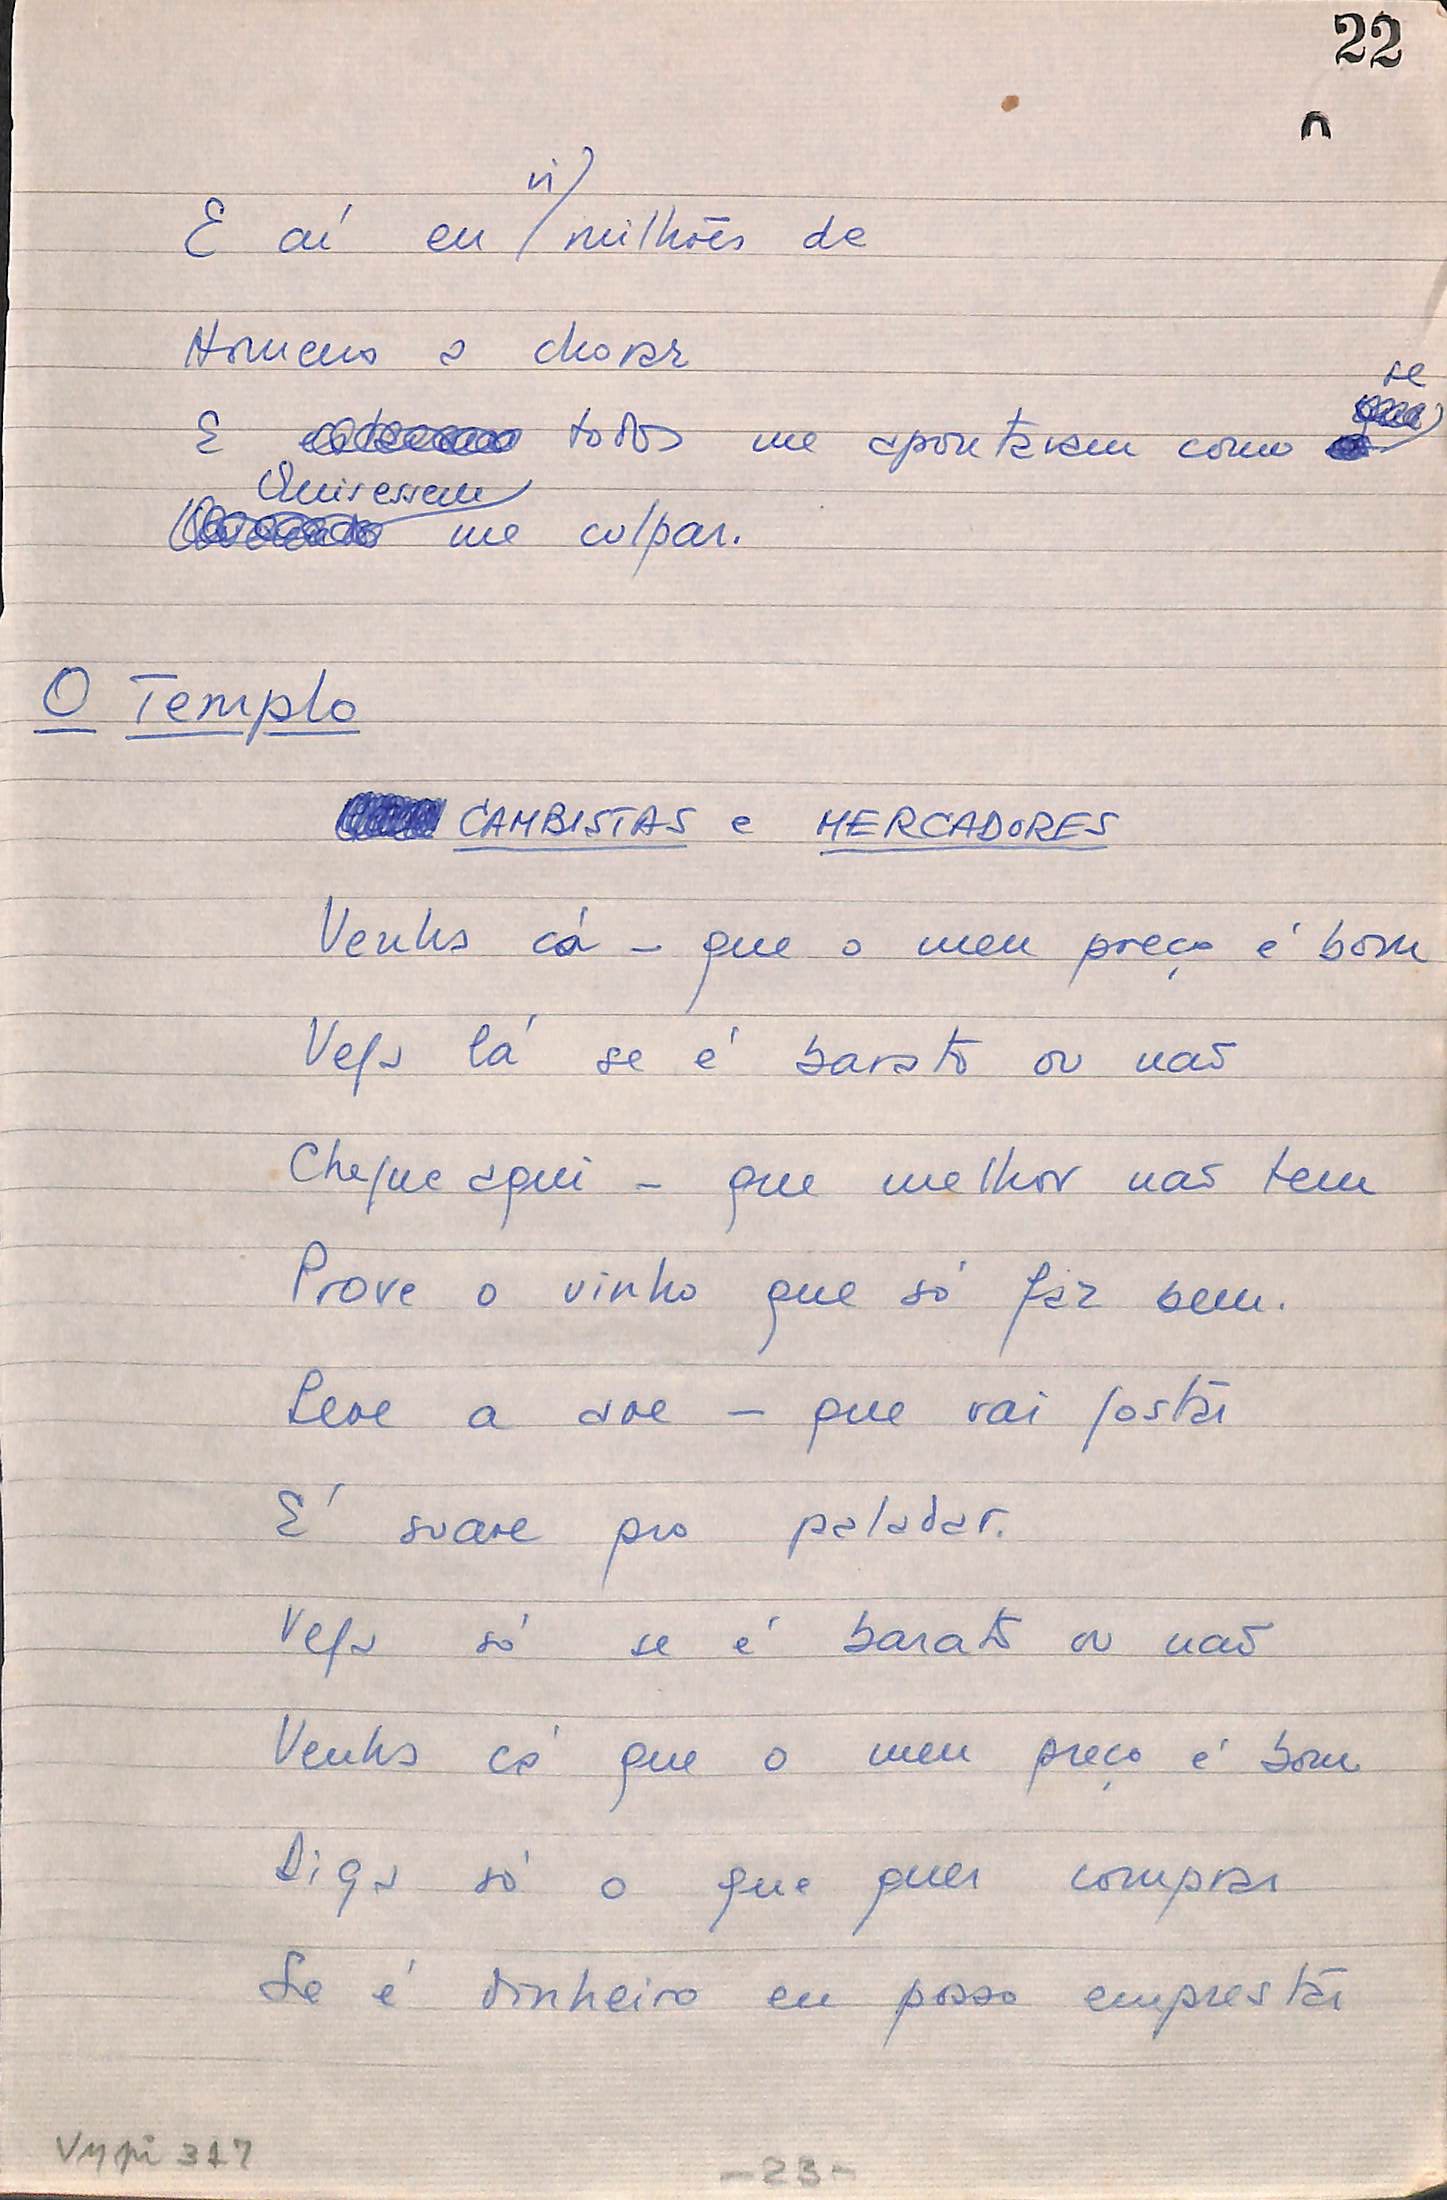 22
E aí eu vi milhões de
Homens a chorar
E todos me apontavam como se
Quisessem me culpar.
O Templo
CAMBISTAS e MERCADORES
Venha cá - que o meu preço é bom
Veja lá se é barato ou não
Chegue aqui - que melhor não tem
Prove o vinho que só faz bem.
Leve a ave - que vai gostar
É suave pro paladar.
Veja só se é barato ou não
Venha cá que o meu preço é bom
Diga só o que quer comprar
Se é dinheiro eu posso emprestar
Vypi 317
-23-